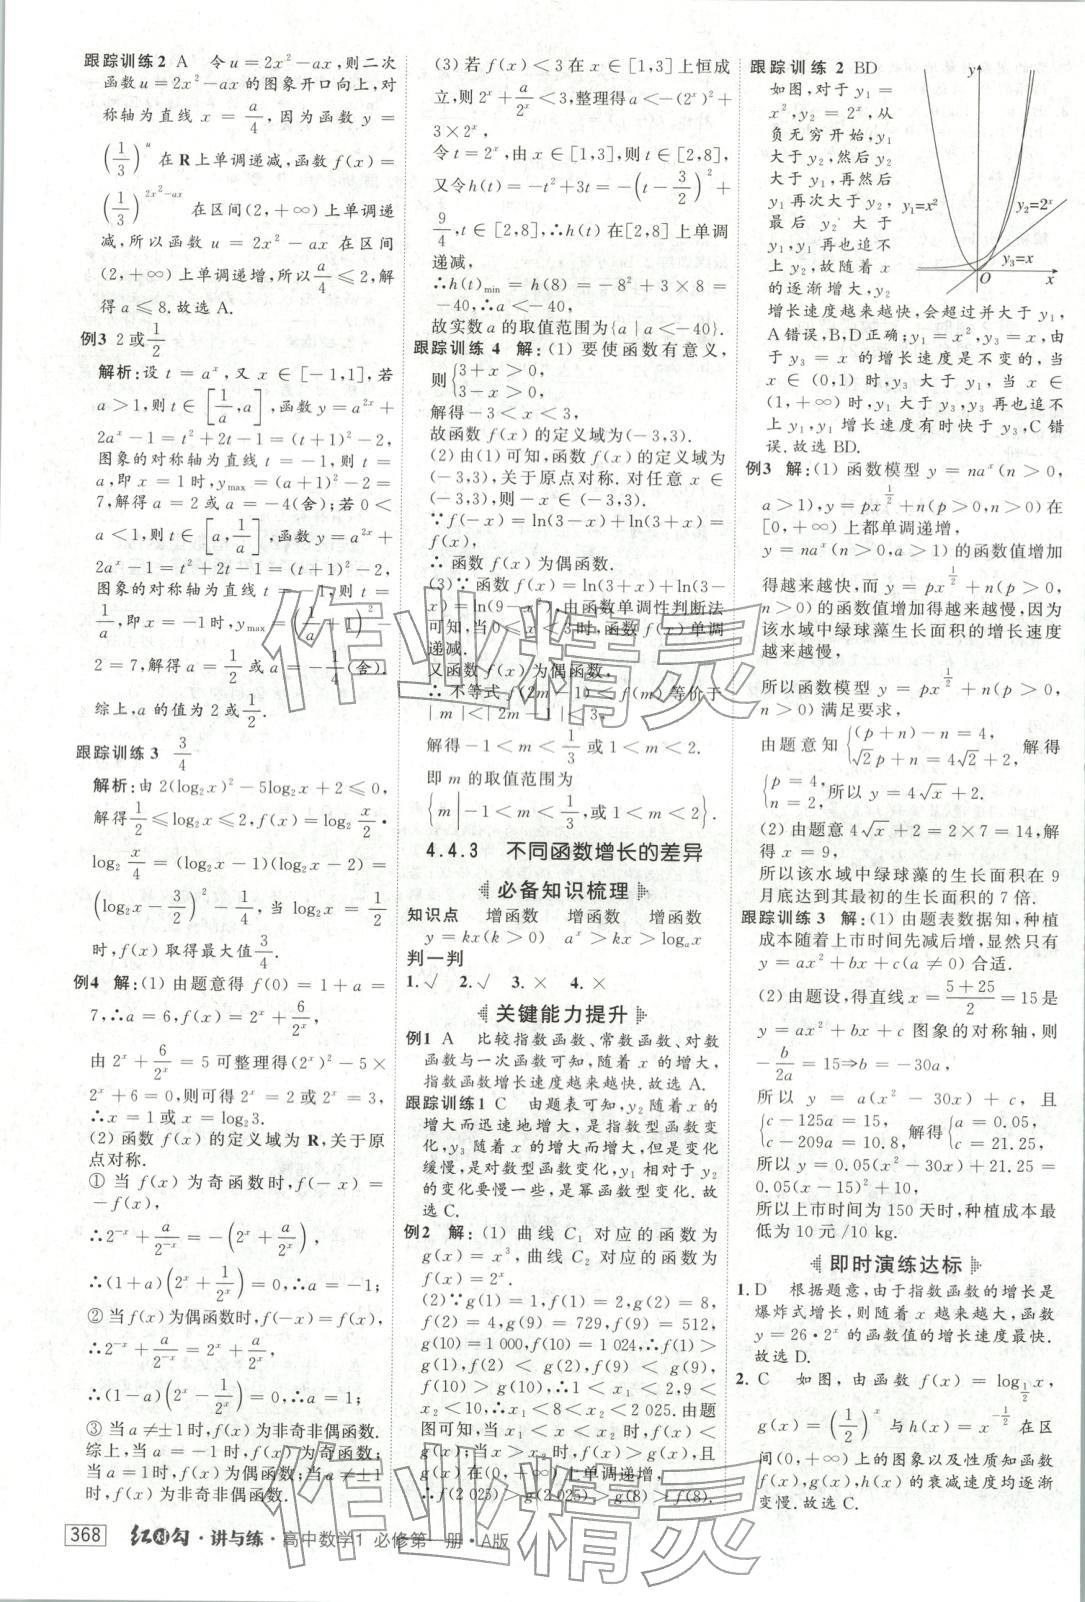 跟踪训练2 A 令u=2x²-ax,则二次
函数u=2x²-ax的图象开口向上,对
称轴为直线x=a/4,因为函数y=
(1/3)^u 在R上单调递减,函数f(x)=
(1/3)^(2x²-ax) 在区间(2,+∞)上单调递
减,所以函数u=2x²-ax在区间
(2,+∞)上单调递增,所以a/4≤2,解
得a≤8.故选A.
例3 2或1/2
解析:设t=a^x,又x∈[-1,1],若
a>1,则t∈[1/a,a],函数y=a^(2x)+
2a^x-1=t²+2t-1=(t+1)²-2,
图象的对称轴为直线t=-1,则t=
a,即x=1时,y_max=(a+1)²-2=
7,解得a=2或a=-4(舍);若0<
a<1,则t∈[a,1/a],函数y=a^(2x)+
2a^x-1=t²+2t-1=(t+1)²-2,
图象的对称轴为直线t=-1,则t=
1/a,即x=-1时,y_max=(1/a+1)²-
2=7,解得a=1/2或a=-1/4(舍).
综上,a的值为2或1/2.
跟踪训练3 3/4
解析:由2(log₂x)²-5log₂x+2≤0,
解得1/2≤log₂x≤2,f(x)=log₂ x/2·
log₂ x/4=(log₂x-1)(log₂x-2)=
(log₂x-3/2)²-1/4,当log₂x=1/2
时,f(x)取得最大值3/4.
例4 解:(1)由题意得f(0)=1+a=
7,∴a=6,f(x)=2^x+6/2^x,
由2^x+6/2^x=5可整理得(2^x)²-5×
2^x+6=0,则可得2^x=2或2^x=3,
∴x=1或x=log₂3.
(2)函数f(x)的定义域为R,关于原
点对称.
①当f(x)为奇函数时,f(-x)=
-f(x),
∴2^(-x)+a/2^(-x)=-(2^x+a/2^x),
∴(1+a)(2^x+1/2^x)=0,∴a=-1;
②当f(x)为偶函数时,f(-x)=f(x),
∴2^(-x)+a/2^(-x)=2^x+a/2^x,
∴(1-a)(2^x-1/2^x)=0,∴a=1;
③当a≠±1时,f(x)为非奇非偶函数.
综上,当a=-1时,f(x)为奇函数;
当a=1时,f(x)为偶函数;当a≠±1
时,f(x)为非奇非偶函数.
(3)若f(x)<3在x∈[1,3]上恒成
立,则2^x+a/2^x<3,整理得a<-(2^x)²+
3×2^x,
令t=2^x,由x∈[1,3],则t∈[2,8],
又令h(t)=-t²+3t=-(t-3/2)²+
9/4,t∈[2,8],∴h(t)在[2,8]上单调
递减,
∴h(t)_min=h(8)=-8²+3×8=
-40,∴a<-40,
故实数a的取值范围为{a|a<-40}.
跟踪训练4 解:(1)要使函数有意义,
则{3+x>0,
3-x>0,
解得-3<x<3,
故函数f(x)的定义域为(-3,3).
(2)由(1)可知,函数f(x)的定义域为
(-3,3),关于原点对称.对任意x∈
(-3,3),则-x∈(-3,3),
∵f(-x)=ln(3-x)+ln(3+x)=
f(x),
∴函数f(x)为偶函数.
(3)∵函数f(x)=ln(3+x)+ln(3-
x)=ln(9-x²),由函数单调性判断法
可知,当0≤x<3时,函数f(x)单调
递减.
又函数f(x)为偶函数,
∴不等式f(2m-1)<f(m)等价于
|m|<|2m-1|<3,
解得-1<m<1/3或1<m<2.
即m的取值范围为
{m|-1<m<1/3,或1<m<2}.
4.4.3 不同函数增长的差异
必备知识梳理
知识点 增函数 增函数 增函数
y=kx(k>0) a^x>kx>logₐx
判一判
1.√ 2.√ 3.× 4.×
关键能力提升
例1 A 比较指数函数、常数函数、对数
函数与一次函数可知,随着x的增大,
指数函数增长速度越来越快.故选A.
跟踪训练1 C 由题表可知,y₂随着x的
增大而迅速地增大,是指数型函数变
化,y₃随着x的增大而增大,但是变化
缓慢,是对数型函数变化,y₁相对于y₂
的变化要慢一些,是幂函数型变化.故
选C.
例2 解:(1)曲线C₁对应的函数为
g(x)=x³,曲线C₂对应的函数为
f(x)=2^x.
(2)∵g(1)=1,f(1)=2,g(2)=8,
f(2)=4,g(9)=729,f(9)=512,
g(10)=1 000,f(10)=1 024,∴f(1)>
g(1),f(2)<g(2),f(9)<g(9),
f(10)>g(10),∴1<x₁<2,9<
x₂<10,∴x₁<8<x₂<2 025.由题
图可知,当x₁<x<x₂时,f(x)<
g(x);当x>x₂时,f(x)>g(x),且
g(x)在(0,+∞)上单调递增,
∴f(2 025)>g(2 025)>g(8)>f(8).
跟踪训练2 BD
如图,对于y₁=
x²,y₂=2^x,从
负无穷开始,y₁
大于y₂,然后y₂
大于y₁,再然后
y₁再次大于y₂,
最后y₂大于
y₁,y₁再也追不
上y₂,故随着x
的逐渐增大,y₂
增长速度越来越快,会超过并大于y₁,
A错误,B,D正确;y₁=x²,y₃=x,由
于y₃=x的增长速度是不变的,当
x∈(0,1)时,y₃大于y₁,当x∈
(1,+∞)时,y₁大于y₃,y₃再也追不
上y₁,y₁增长速度有时快于y₃,C错
误.故选BD.
y
y₁=x²
y₂=2^x
y₃=x
O
x
例3 解:(1)函数模型y=na^x(n>0,
a>1),y=px^(1/2)+n(p>0,n>0)在
[0,+∞)上都单调递增,
y=na^x(n>0,a>1)的函数值增加
得越来越快,而y=px^(1/2)+n(p>0,
n>0)的函数值增加得越来越慢,因为
该水域中绿球藻生长面积的增长速度
越来越慢,
所以函数模型y=px^(1/2)+n(p>0,
n>0)满足要求,
由题意知{(p+n)-n=4,
√2p+n=4√2+2, 解得
{p=4,
n=2, 所以y=4√x+2.
(2)由题意4√x+2=2×7=14,解
得x=9,
所以该水域中绿球藻的生长面积在9
月底达到其最初的生长面积的7倍.
跟踪训练3 解:(1)由题表数据知,种植
成本随着上市时间先减后增,显然只有
y=ax²+bx+c(a≠0)合适.
(2)由题设,得直线x=(5+25)/2=15是
y=ax²+bx+c图象的对称轴,则
-b/2a=15⇒b=-30a,
所以y=a(x²-30x)+c,且
{c-125a=15,
c-209a=10.8, 解得{a=0.05,
c=21.25,
所以y=0.05(x²-30x)+21.25=
0.05(x-15)²+10,
所以上市时间为150天时,种植成本最
低为10元/10 kg.
即时演练达标
1. D 根据题意,由于指数函数的增长是
爆炸式增长,则随着x越来越大,函数
y=26·2^x的函数值的增长速度最快.
故选D.
2. C 如图,由函数f(x)=log_(1/2)x,
g(x)=(1/2)^x与h(x)=x^(-1/2)在区
间(0,+∞)上的图象以及性质知函数
f(x),g(x),h(x)的衰减速度均逐渐
变慢.故选C.
368 红对勾·讲与练·高中数学1 必修第一册·A版
作业精灵
作业精灵